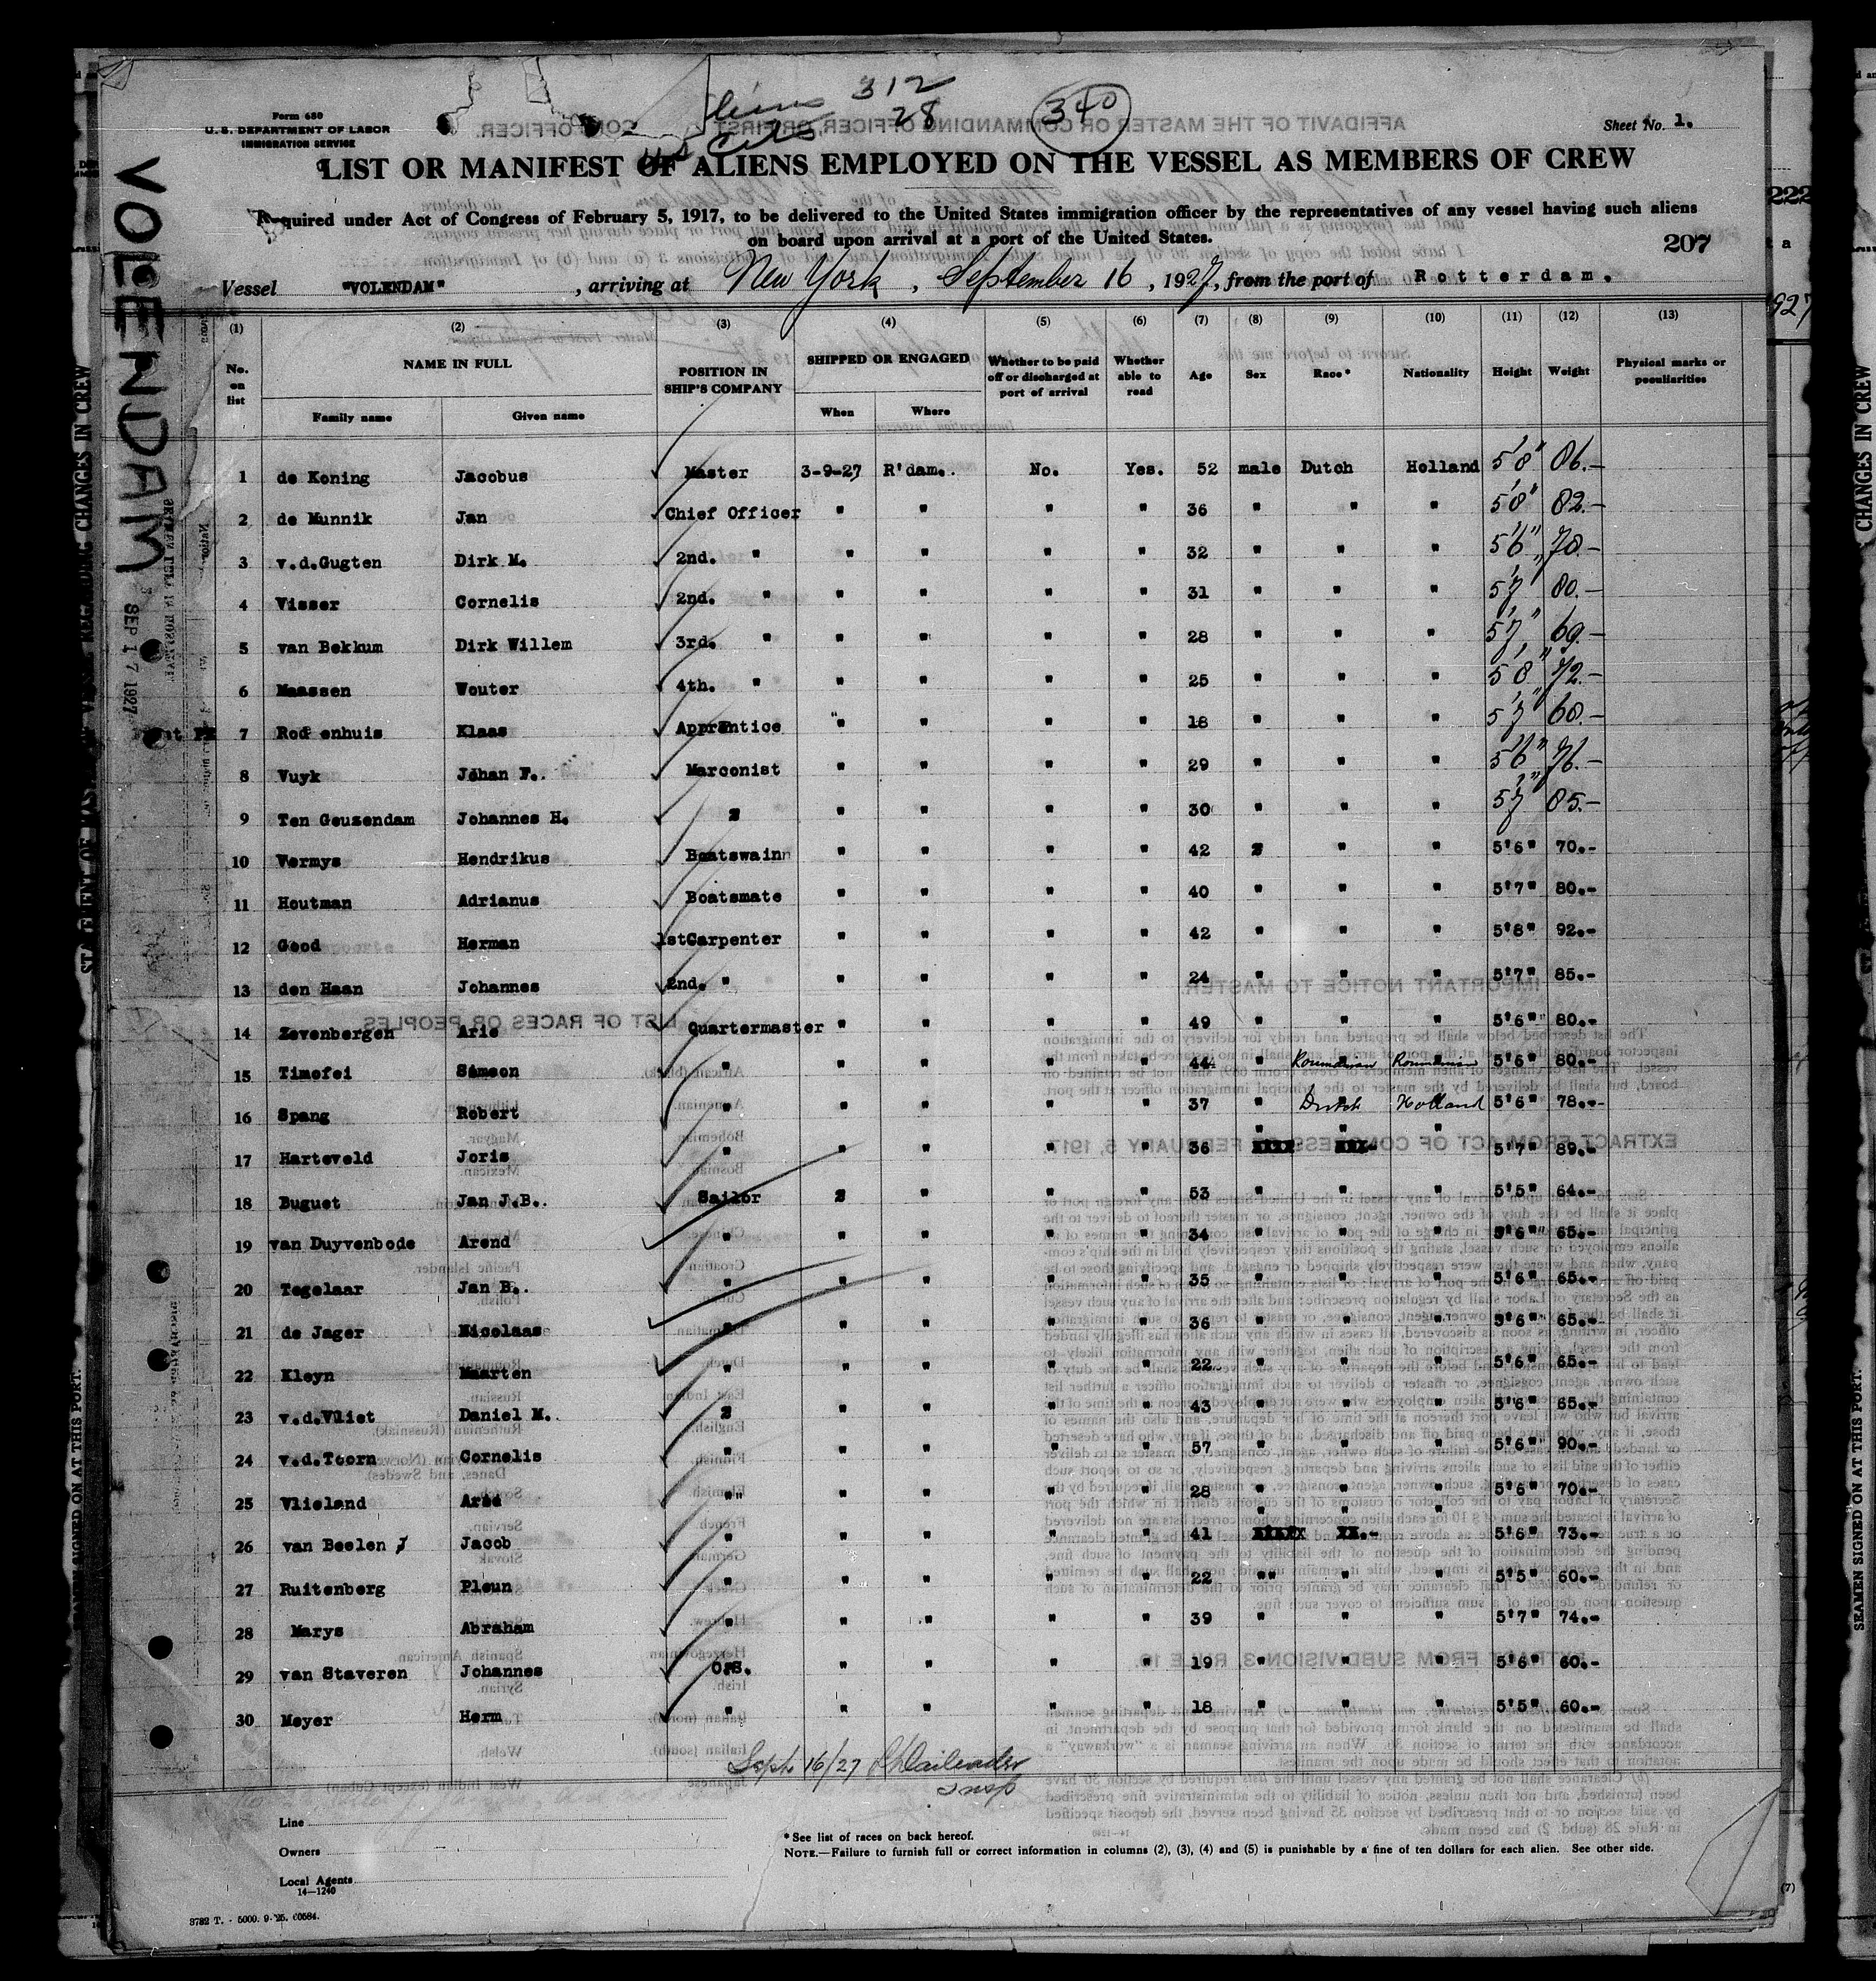 Aliens 312
U.S. Cits 28
340
Form 680
U. S. DEPARTMENT OF LABOR
IMMIGRATION SERVICE
Sheet No. 1.
LIST OR MANIFEST OF ALIENS EMPLOYED ON THE VESSEL AS MEMBERS OF CREW
Required under Act of Congress of February 5, 1917, to be delivered to the United States immigration officer by the representatives of any vessel having such aliens
on board upon arrival at a port of the United States.
207
Vessel "VOLENDAM", arriving at New York, September 16, 1927, from the port of Rotterdam.
VOLENDAM
SEP 17 1927
(1) (2) (3) (4) (5) (6) (7) (8) (9) (10) (11) (12) (13)
No. on list NAME IN FULL POSITION IN SHIP'S COMPANY SHIPPED OR ENGAGED Whether to be paid off or discharged at port of arrival Whether able to read Age Sex Race* Nationality Height Weight Physical marks or peculiarities
Family name Given name When Where
1 de Koning Jacobus Master 3-9-27 R'dam. No. Yes. 52 male Dutch Holland 5'8" 86.-
2 de Munnik Jan Chief Officer " " " " 36 " " " 5'8" 82.-
3 v.d.Gugten Dirk M. 2nd. " " " " " 32 " " " 5'6" 70.-
4 Visser Cornelis 2nd. " " " " " 31 " " " 5'7" 80.-
5 van Bekkum Dirk Willem 3rd. " " " " " 28 " " " 5'7" 69.-
6 Maassen Wouter 4th. " " " " " 25 " " " 5'8" 72.-
7 Rodenhuis Klaas Apprentice " " " " 18 " " " 5'7" 60.-
8 Vuyk Johan F. Marconist " " " " 29 " " " 5'6" 76.-
9 Ten Geuzendam Johannes H. " " " " " 30 " " " 5'7" 85.-
10 Vermys Hendrikus Boatswain " " " " 42 " " " 5'6" 70.-
11 Houtman Adrianus Boatsmate " " " " 40 " " " 5'7" 80.-
12 Good Herman 1stCarpenter " " " " 42 " " " 5'8" 92.-
13 den Haan Johannes 2nd. " " " " " 24 " " " 5'7" 85.-
14 Zevenbergen Arie Quartermaster " " " " 49 " " " 5'6" 80.-
15 Timofei Simeon " " " " " 44 " Roumanian Roumania 5'6" 80.-
16 Spang Robert " " " " " 37 " Dutch Holland 5'6" 78.-
17 Harteveld Joris " " " " " 36 " " " 5'7" 89.-
18 Buguet Jan J.B. Sailor " " " " 53 " " " 5'5" 64.-
19 van Duyvenbode Arend " " " " " 34 " " " 5'6" 65.-
20 Tegelaar Jan B. " " " " " 35 " " " 5'6" 65.-
21 de Jager Nicolaas " " " " " 36 " " " 5'6" 65.-
22 Kleyn Maarten " " " " " 22 " " " 5'6" 65.-
23 v.d.Vliet Daniel M. " " " " " 43 " " " 5'6" 65.-
24 v.d.Toorn Cornelis " " " " " 57 " " " 5'6" 90.-
25 Vlieland Arie " " " " " 28 " " " 5'6" 70.-
26 van Beelen J Jacob " " " " " 41 " " " 5'6" 73.-
27 Ruitenberg Pleun " " " " " 22 " " " 5'5" 60.-
28 Marys Abraham " " " " " 39 " " " 5'7" 74.-
29 van Staveren Johannes O.S. " " " " 19 " " " 5'6" 60.-
30 Meyer Herm " " " " " 18 " " " 5'5" 60.-
Sept 16/27
Insp
Line
Owners
Local Agents
14—1240
* See list of races on back hereof.
NOTE.—Failure to furnish full or correct information in columns (2), (3), (4) and (5) is punishable by a fine of ten dollars for each alien. See other side.
3782 T. - 5000. 9-'25. 60584.
(7)
CHANGES IN CREW
SEAMEN SIGNED ON AT THIS PORT.